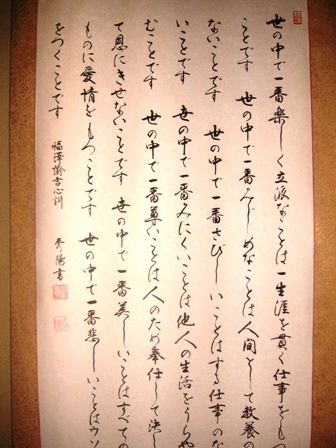 世の中で一番楽しく立派なことは一生涯を貫く仕事をもつ
ことです　世の中で一番みじめなことは人間として教養の
ないことです　世の中で一番さびしいことはする仕事のな
いことです　世の中で一番みにくいことは他人の生活をうらや
むことです　世の中で一番尊いことは人のため奉仕して決し
て恩にきせないことです　世の中で一番美しいことはすべての
ものに愛情をもつことです　世の中で一番悲しいことはウソ
をつくことです
福澤諭吉心訓
秀陽書